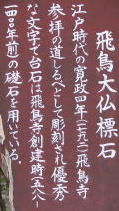 飛鳥大仏標石
江戸時代の寛政四年(一七九二)飛鳥寺
参拝の道しるべとして彫刻され優秀
な文字で台石は飛鳥寺創建時(五八八~
一四〇〇年前)の礎石を用いている。